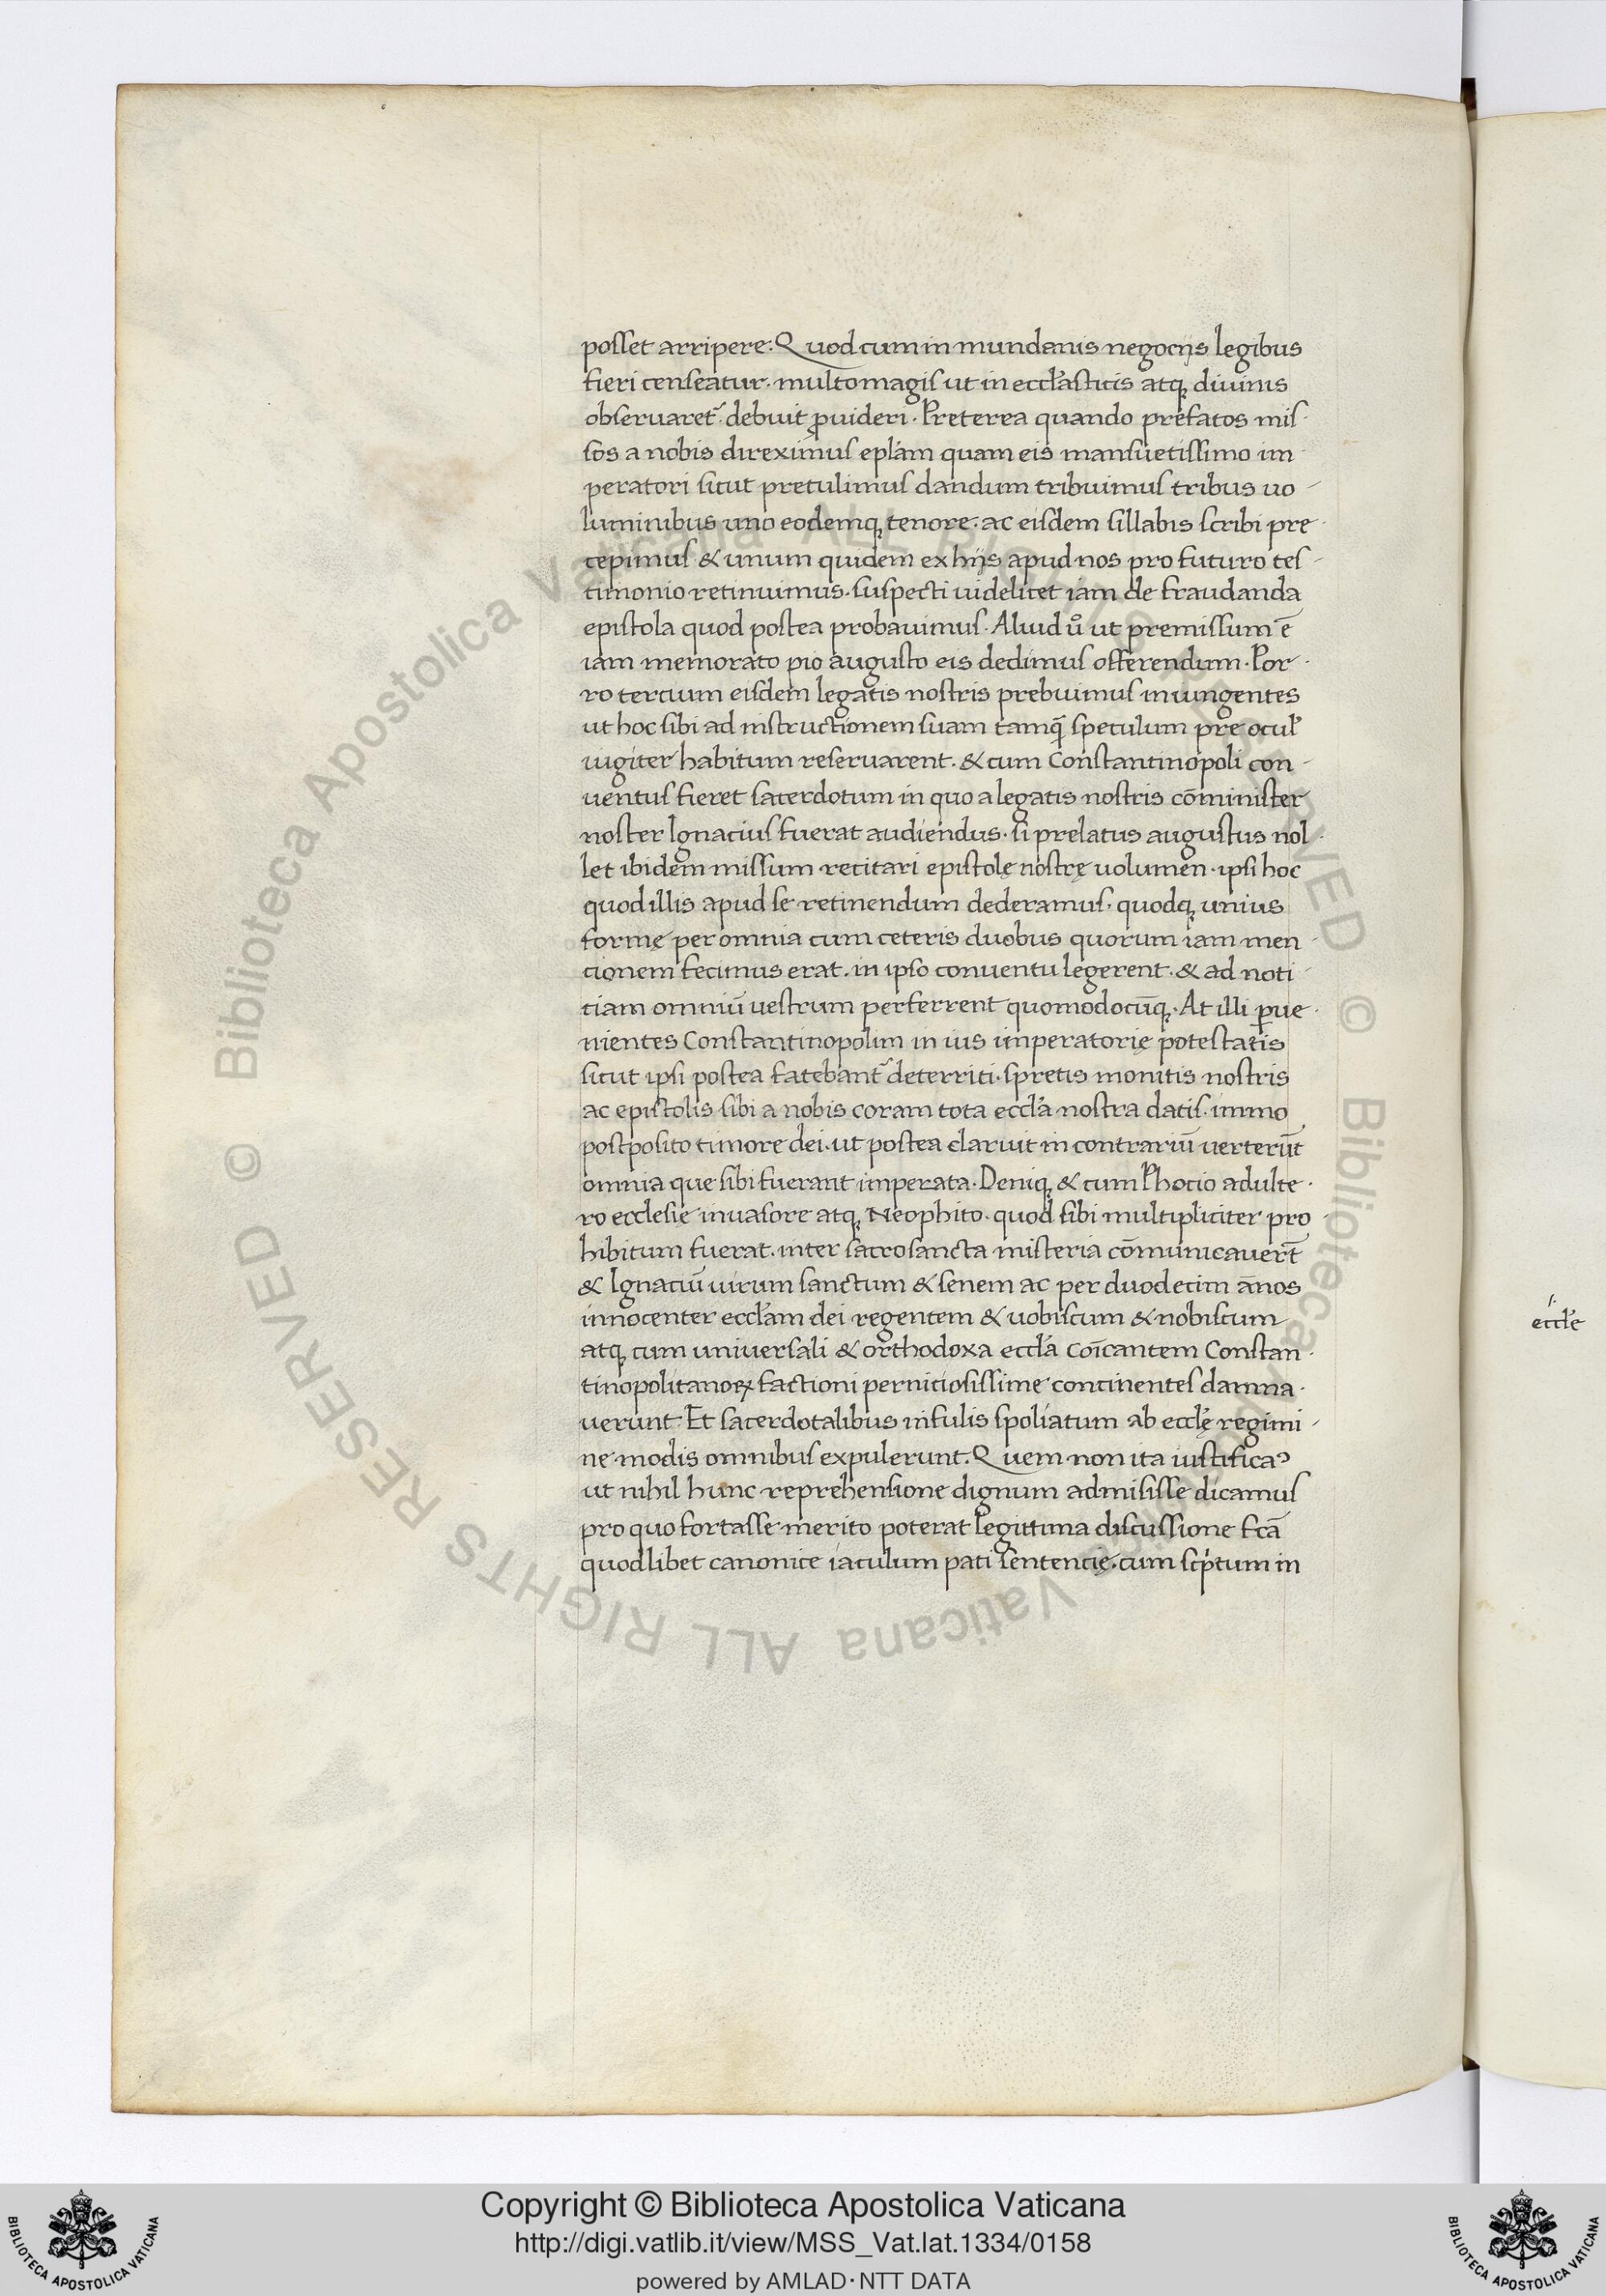 posset arripere. Quod cum in mundanis negociis legibus
fieri censeatur. multo magis ut in eccl'asticis atq; diuinis
obseruaret᷑. debuit ꝓuideri. Preterea quando prefatos mis-
sos a nobis direximus epl'am quam eis mansuetissimo im-
peratori sicut pretulimus dandum tribuimus tribus uo-
luminibus uno eodemq; tenore. ac eisdem sillabis scribi pre-
cepimus & unum quidem ex hijs apud nos pro futuro tes-
timonio retinuimus. suspecti uidelicet iam de fraudanda
epistola quod postea probauimus. Aliud ů ut premissum ē
iam memorato pio augusto eis dedimus offerendum. Por-
ro tercium eisdem legatis nostris prebuimus iniungentes
ut hoc sibi ad instructionem suam tamq̄ speculum pre ocul'
iugiter habitum reseruarent. & cum Constantinopoli con-
uentus fieret sacerdotum in quo a legatis nostris cōminister
noster Ignacius fuerat audiendus. si prelatus augustus nol-
let ibidem missum recitari epistolę nostrę uolumen. ipsi hoc
quod illis apud se retinendum dederamus. quodq; unius
formę per omnia cum ceteris duobus quorum iam men-
cionem fecimus erat. in ipso conuentu legerent. & ad noti-
tiam omniū uestrum perferrent quomodocūq;. At illi ꝑue-
nientes Constantinopolim in ius imperatorię potestatis
sicut ipsi postea fatebant᷑ deterriti. spretis monitis nostris
ac epistolis sibi a nobis coram tota eccl'a nostra datis. immo
postposito timore dei. ut postea claruit in contrariū uerterūt
omnia que sibi fuerant imperata. Deniq; & cum Phocio adulte-
ro ecclesię inuasore atq; Neophito. quod sibi multipliciter pro-
hibitum fuerat. inter sacrosancta misteria cōmunicauert̄
& Ignaciū uirum sanctum & senem ac per duodecim ānos
innocenter eccl'am dei regentem & uobiscum & nobiscum
atq; cum uniuersali & orthodoxa eccl'a coīcantem Constan-
tinopolitanoꝝ factioni perniciosissime continentes damna-
uerunt. Et sacerdotalibus infulis spoliatum ab eccl'ę regimi-
ne modis omnibus expulerunt. Quem non ita iustificaꝰ
ut nihil hunc reprehensione dignum admisisse dicamus
pro quo fortasse merito poterat legittima discussione fcā
quodlibet canonice iaculum pati sentencię. cum scptum in
eccl'e
Copyright © Biblioteca Apostolica Vaticana
http://digi.vatlib.it/view/MSS_Vat.lat.1334/0158
powered by AMLAD·NTT DATA
BIBLIOTECA APOSTOLICA VATICANA
BIBLIOTECA APOSTOLICA VATICANA
© Biblioteca Apostolica Vaticana ALL RIGHTS RESERVED
© Biblioteca Apostolica Vaticana ALL RIGHTS RESERVED